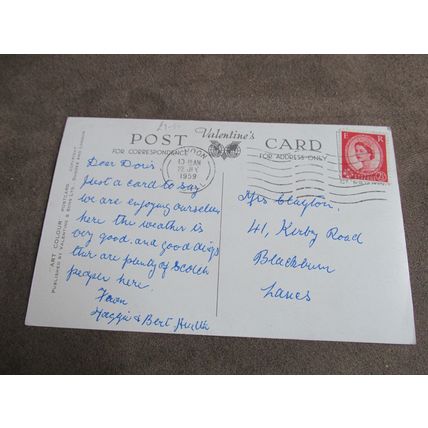 POST Valentine's CARD
FOR CORRESPONDENCE
FOR ADDRESS ONLY
1959
E R
Dear Doris
Just a card to say
we are enjoying ourselves
here the weather is
very good, and good digs
ther are plenty of Scotch
people here.
From
& Bert
Mrs Clayton.
41, Kirby Road
Blackburn
Lancs
"ART COLOUR" POSTCARD
PUBLISHED BY VALENTINE & SONS LTD. DUNDEE AND LONDON